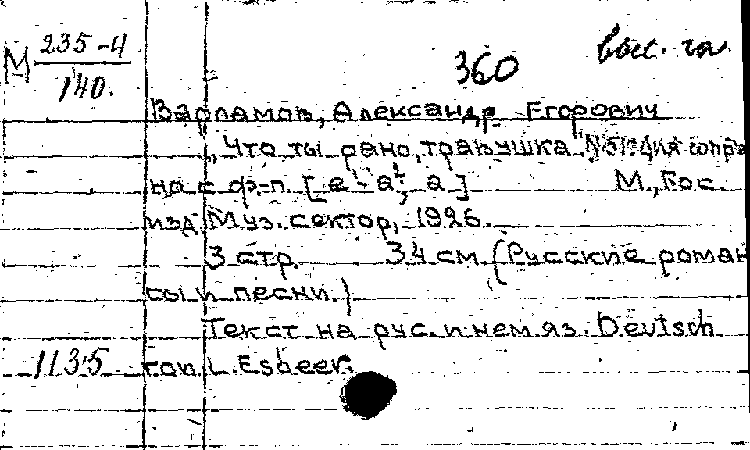 М 235-4
140.
360
Варламов, Александр Егорович
„Что ты рано, травушка N51. Для сопра
но с ф.-п. [e¹-a²; a] М., Гос.
изд. Муз. сектор, 1926.
3 стр. 34 см. (Русские роман
сы и песни.)
Текст на рус. и нем яз. Deutsch
1135 von L. Esbeer.